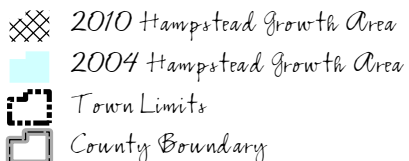 2010 Hampstead Growth Area
2004 Hampstead Growth Area
Town Limits
County Boundary